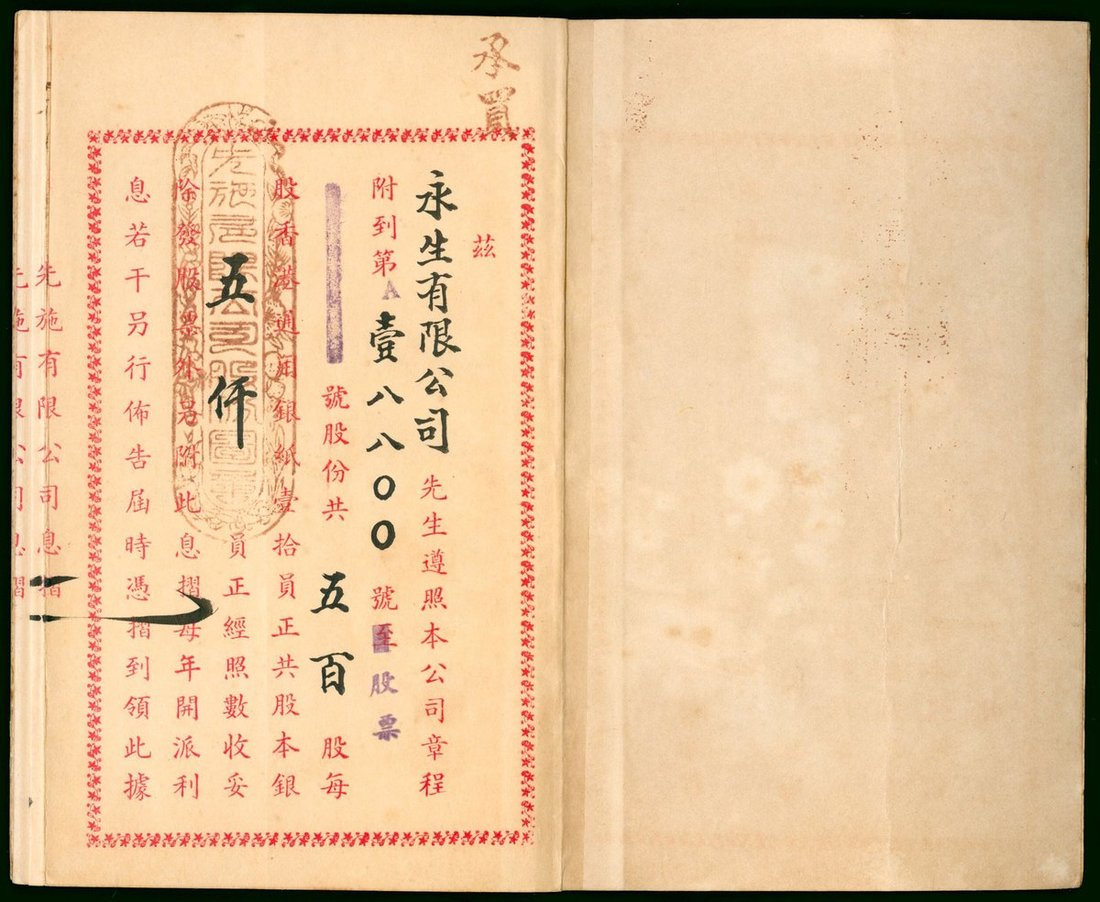 承買
茲
永生有限公司先生遵照本公司章程
附到第A壹八八〇〇號至股票
號股份共五百股每
股香港通用銀紙壹拾員正共股本銀
五仟員正經照數收妥
除發股票外另附此息摺每年開派利
息若干另行佈告屆時憑摺到領此據
先施有限公司股份圖章
先施有限公司息摺
先施有限公司息摺